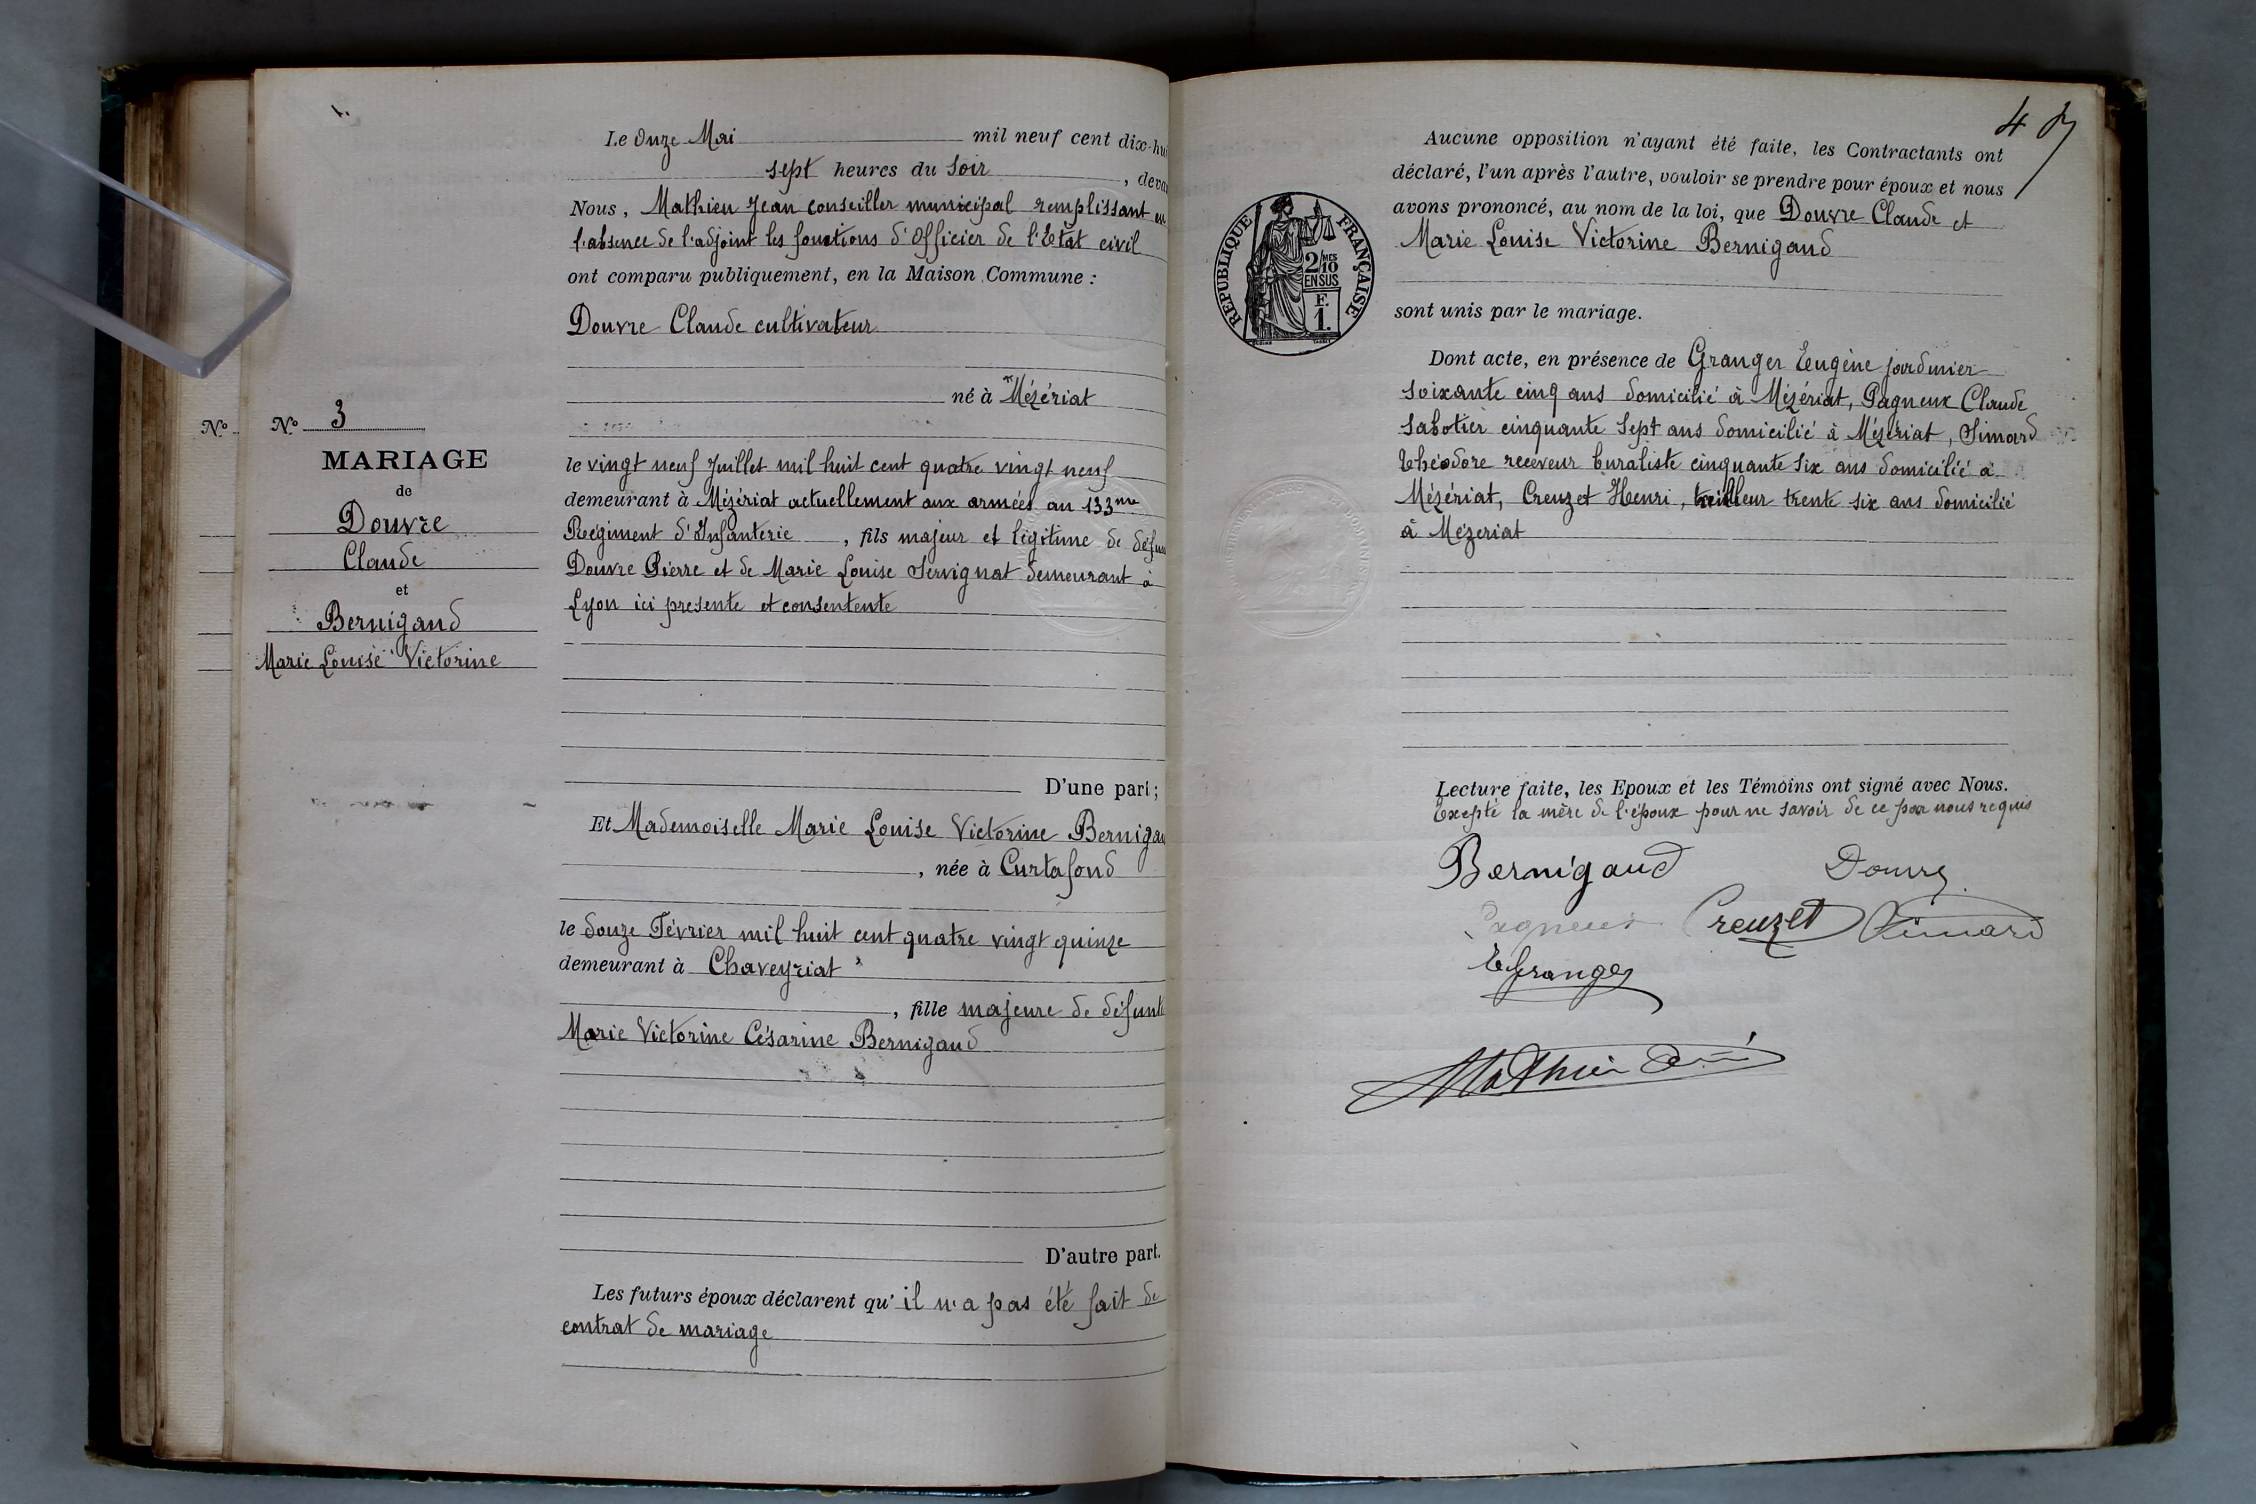 Le Onze Mai mil neuf cent dix-hui
sept heures du soir, deva
Nous, Mathieu Jean conseiller municipal remplissant en
l'absence de l'adjoint les fonctions d'Officier de l'Etat civil
ont comparu publiquement, en la Maison Commune :
Douvre Claude cultivateur
né à Mézériat
le vingt neuf Juillet mil huit cent quatre vingt neuf
demeurant à Mézériat actuellement aux armées au 133me
Régiment d'Infanterie, fils majeur et légitime de défun
Douvre Pierre et de Marie Louise Servignat demeurant à
Lyon ici presente et consentente
D'une part ;
Et Mademoiselle Marie Louise Victorine Bernigau
, née à Curtafond
le douze Février mil huit cent quatre vingt quinze
demeurant à Chaveyriat
, fille majeure de défunte
Marie Victorine Césarine Bernigaud
D'autre part.
Les futurs époux déclarent qu'il n'a pas été fait de
contrat de mariage
N°
N° 3
MARIAGE
de
Douvre
Claude
et
Bernigaud
Marie Louise Victorine
4
Aucune opposition n'ayant été faite, les Contractants ont
déclaré, l'un après l'autre, vouloir se prendre pour époux et nous
avons prononcé, au nom de la loi, que Douvre Claude et
Marie Louise Victorine Bernigaud
sont unis par le mariage.
REPUBLIQUE FRANÇAISE
2/10 MES
EN SUS
F.
1.
Dont acte, en présence de Granger Eugène jardinier
soixante cinq ans domicilié à Mézériat, Pagneux Claude
Sabotier cinquante sept ans domicilié à Mézériat, Simard
Théodore receveur buraliste cinquante six ans domicilié à
Mézériat, Creuzet Henri, tailleur trente six ans domicilié
à Mézeriat
Lecture faite, les Epoux et les Témoins ont signé avec Nous.
Excepté la mère de l'époux pour ne savoir de ce par nous requis
Bernigaud Douvre
Pagneux Creuzet Simard
E Granger
Mathieu